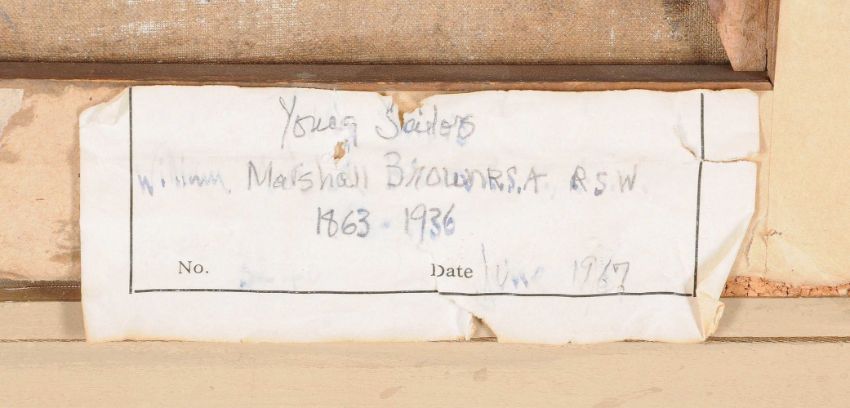 Young Sailors
William Marshall Brown R.S.A. R.S.W.
1863 - 1936
No. Date June 1967